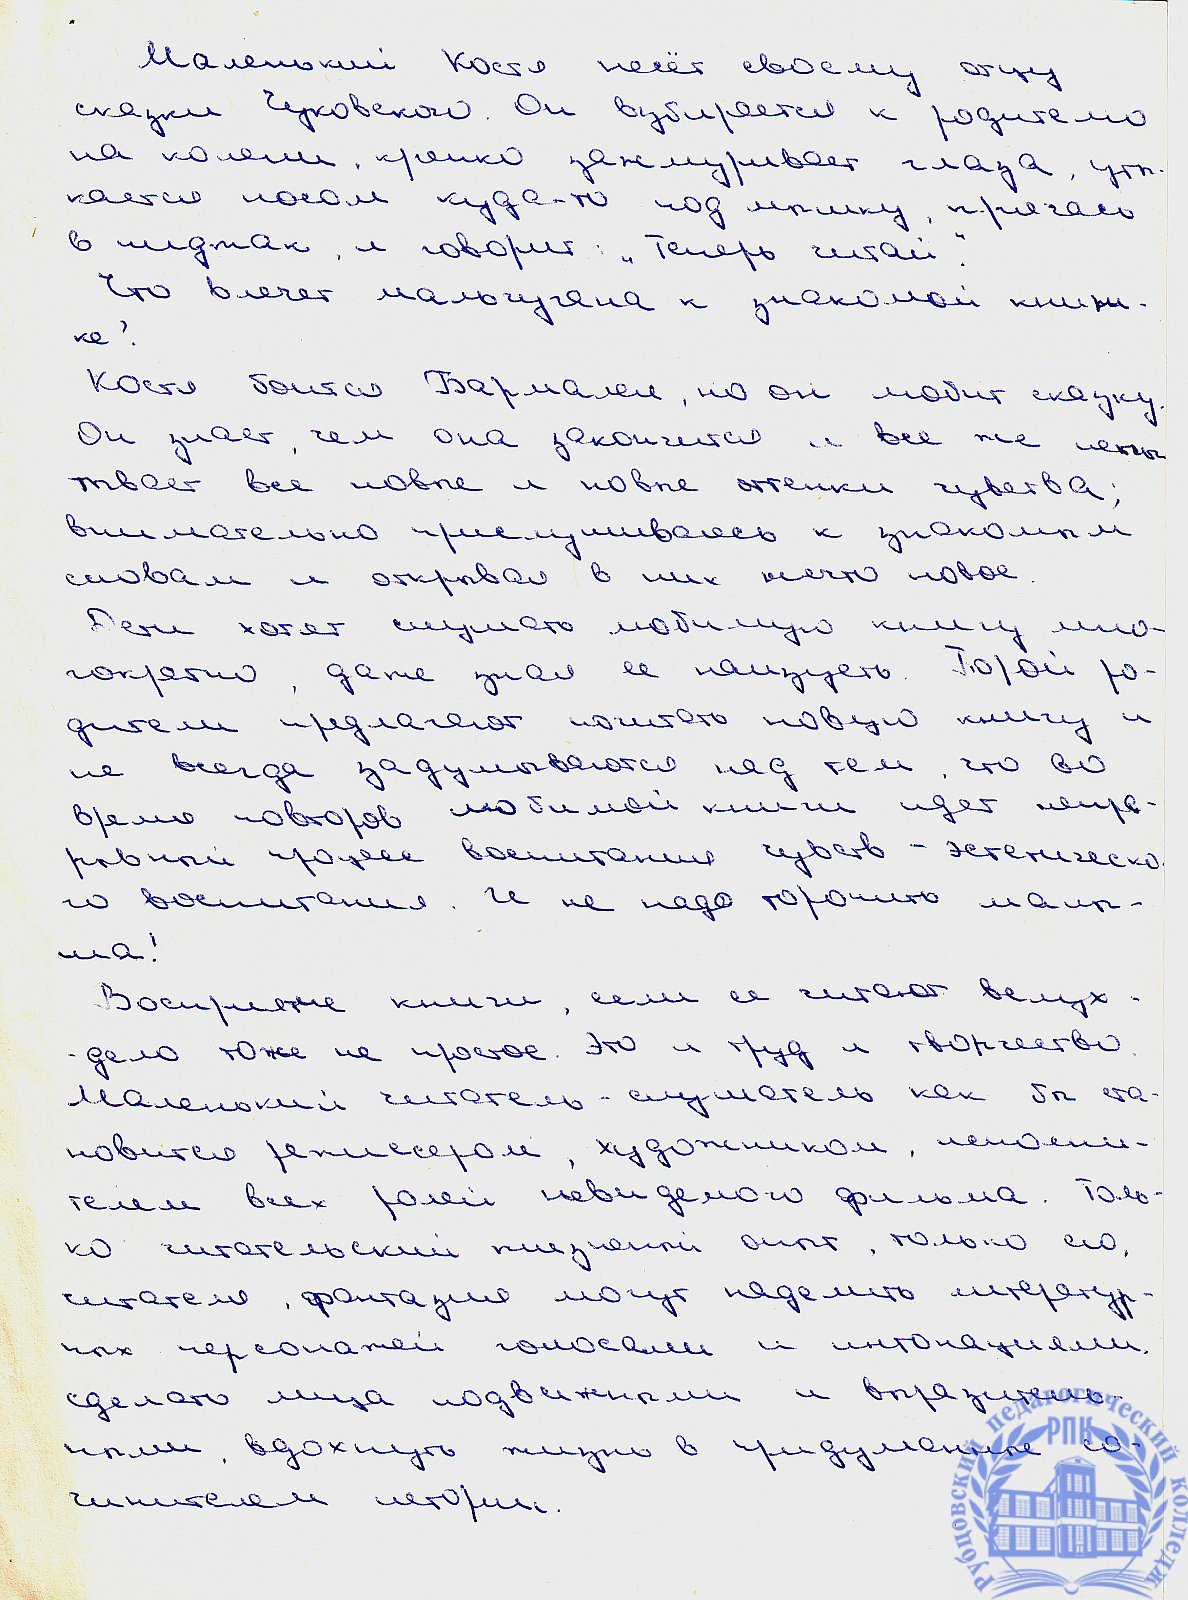 Маленький Костя несёт своему отцу
сказки Чуковского. Он взбирается к родителю
на колени, крепко зажмуривает глаза, уты-
кается носом куда-то под мышку, прячась
в пиджак, и говорит: „Теперь читай".
Что влечет мальчугана к знакомой книж-
ке?
Костя боится Бармалея, но он любит сказку.
Он знает, чем она закончится и все же испы-
тывает все новые и новые оттенки чувства;
внимательно прислушиваясь к знакомым
словам и открывая в них нечто новое.
Дети хотят слушать любимую книгу мно-
гократно, даже зная ее наизусть. Порой ро-
дители предлагают почитать новую книгу и
не всегда задумываются над тем, что во
время повторов любимой книги идет непре-
рывный процесс воспитания чувств - эстетическо-
го воспитания. И не надо торопить малы-
ша!
Восприятие книги, если ее читают вслух -
- дело тоже не простое. Это и труд и творчество.
Маленький читатель - слушатель как бы ста-
новится режиссером, художником, исполни-
телем всех ролей невидемого фильма. Толь-
ко читательский жизненный опыт, только его,
читателя, фантазия могут наделить литератур-
ных персонажей голосами и интонациями,
сделать лица подвижными и выразитель-
ными, вдохнуть жизнь в придуманные со-
чинителем истории.
Рубцовский педагогический колледж
РПК